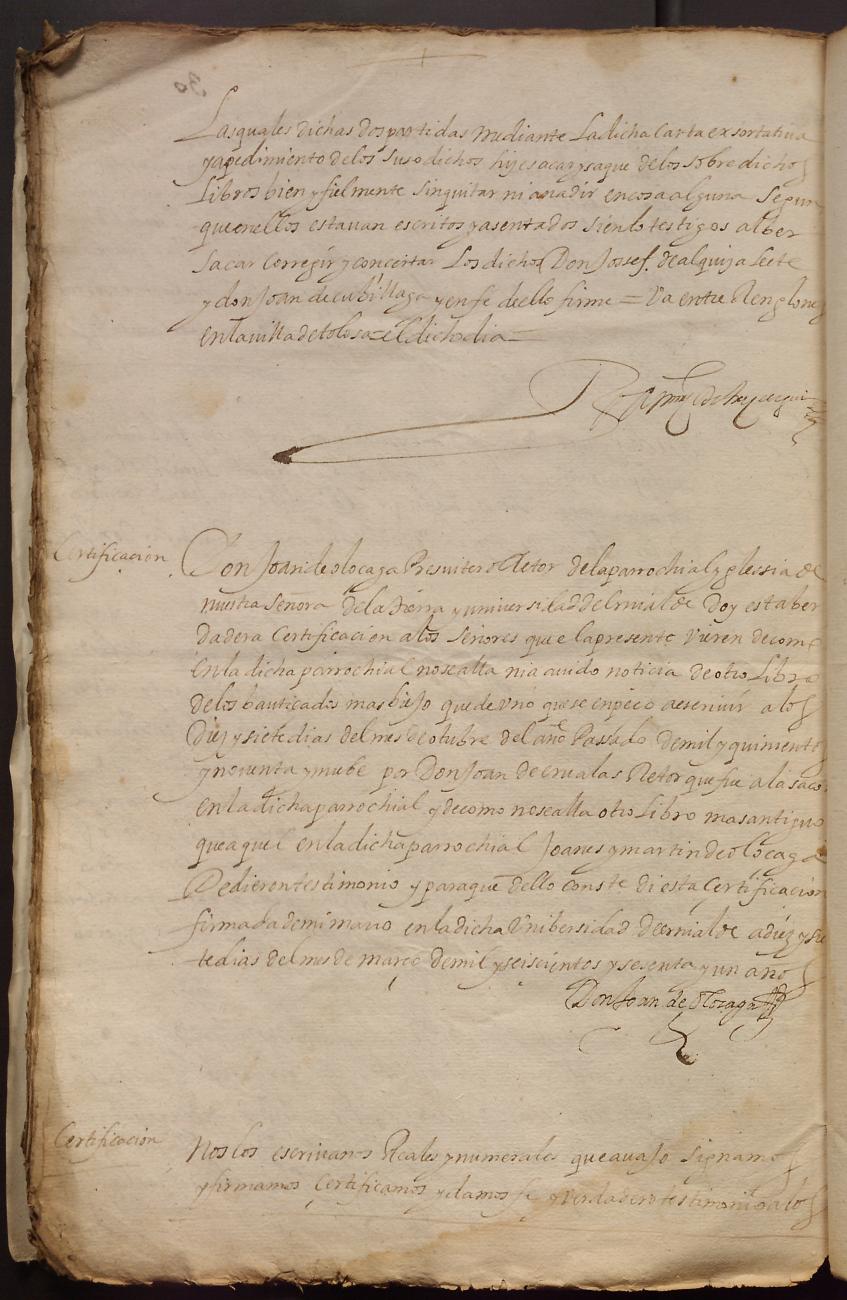 Las quales dichas dos partidas mediante La dicha Carta exsortativa
y apedimiento de los suso dichos hije sacar y saque de los sobre dichos
Libros bien y fielmente sin quitar ni anadir en cosa alguna Segun
que en ellos estavan escritos y asentados siendo testigos alber
Sacar Corregir y concertar Los dichos Don Jossef. de alquiça Lete
y don Joan de cubillaga y en fe de ello firme = Va entre Renglones
en la villa de tolosa = el dicho dia =
Certificacion
Don Joan de olocaga Presvitero Retor de la parrochial yglessia de
nuestra Señora de la tierra y universidad de Ernialde Doy esta ber
dadera Certificacion a los Señores que la presente Vieren de como
en la dicha parrochial no se alla ni a avido noticia de otro Libro
de los bauticados mas biejo que de uno que se enpeço a escrivir a los
Diez y siete dias del mes de otubre del año Passado de mil y quinientos
y noventa y nuebe por Don Joan de
Retor que fue a la saçon
en la dicha parrochial y de como no se alla otro Libro mas antiguo
que aquel en la dicha parrochial Joanes y martin de olocaga
Pedieron testimonio y para que dello conste di esta Certificacion
firmada de mi mano en la dicha Unibersidad de ernialde a diez y sie
te dias del mes de março de mil y seiscientos y sesenta y un años
Don Joan de Olozaga
Certificacion
Nos los escrivanos Reales y numerales que avajo signamos
y firmamos Certificamos y damos fe y verdadero testimonio a los